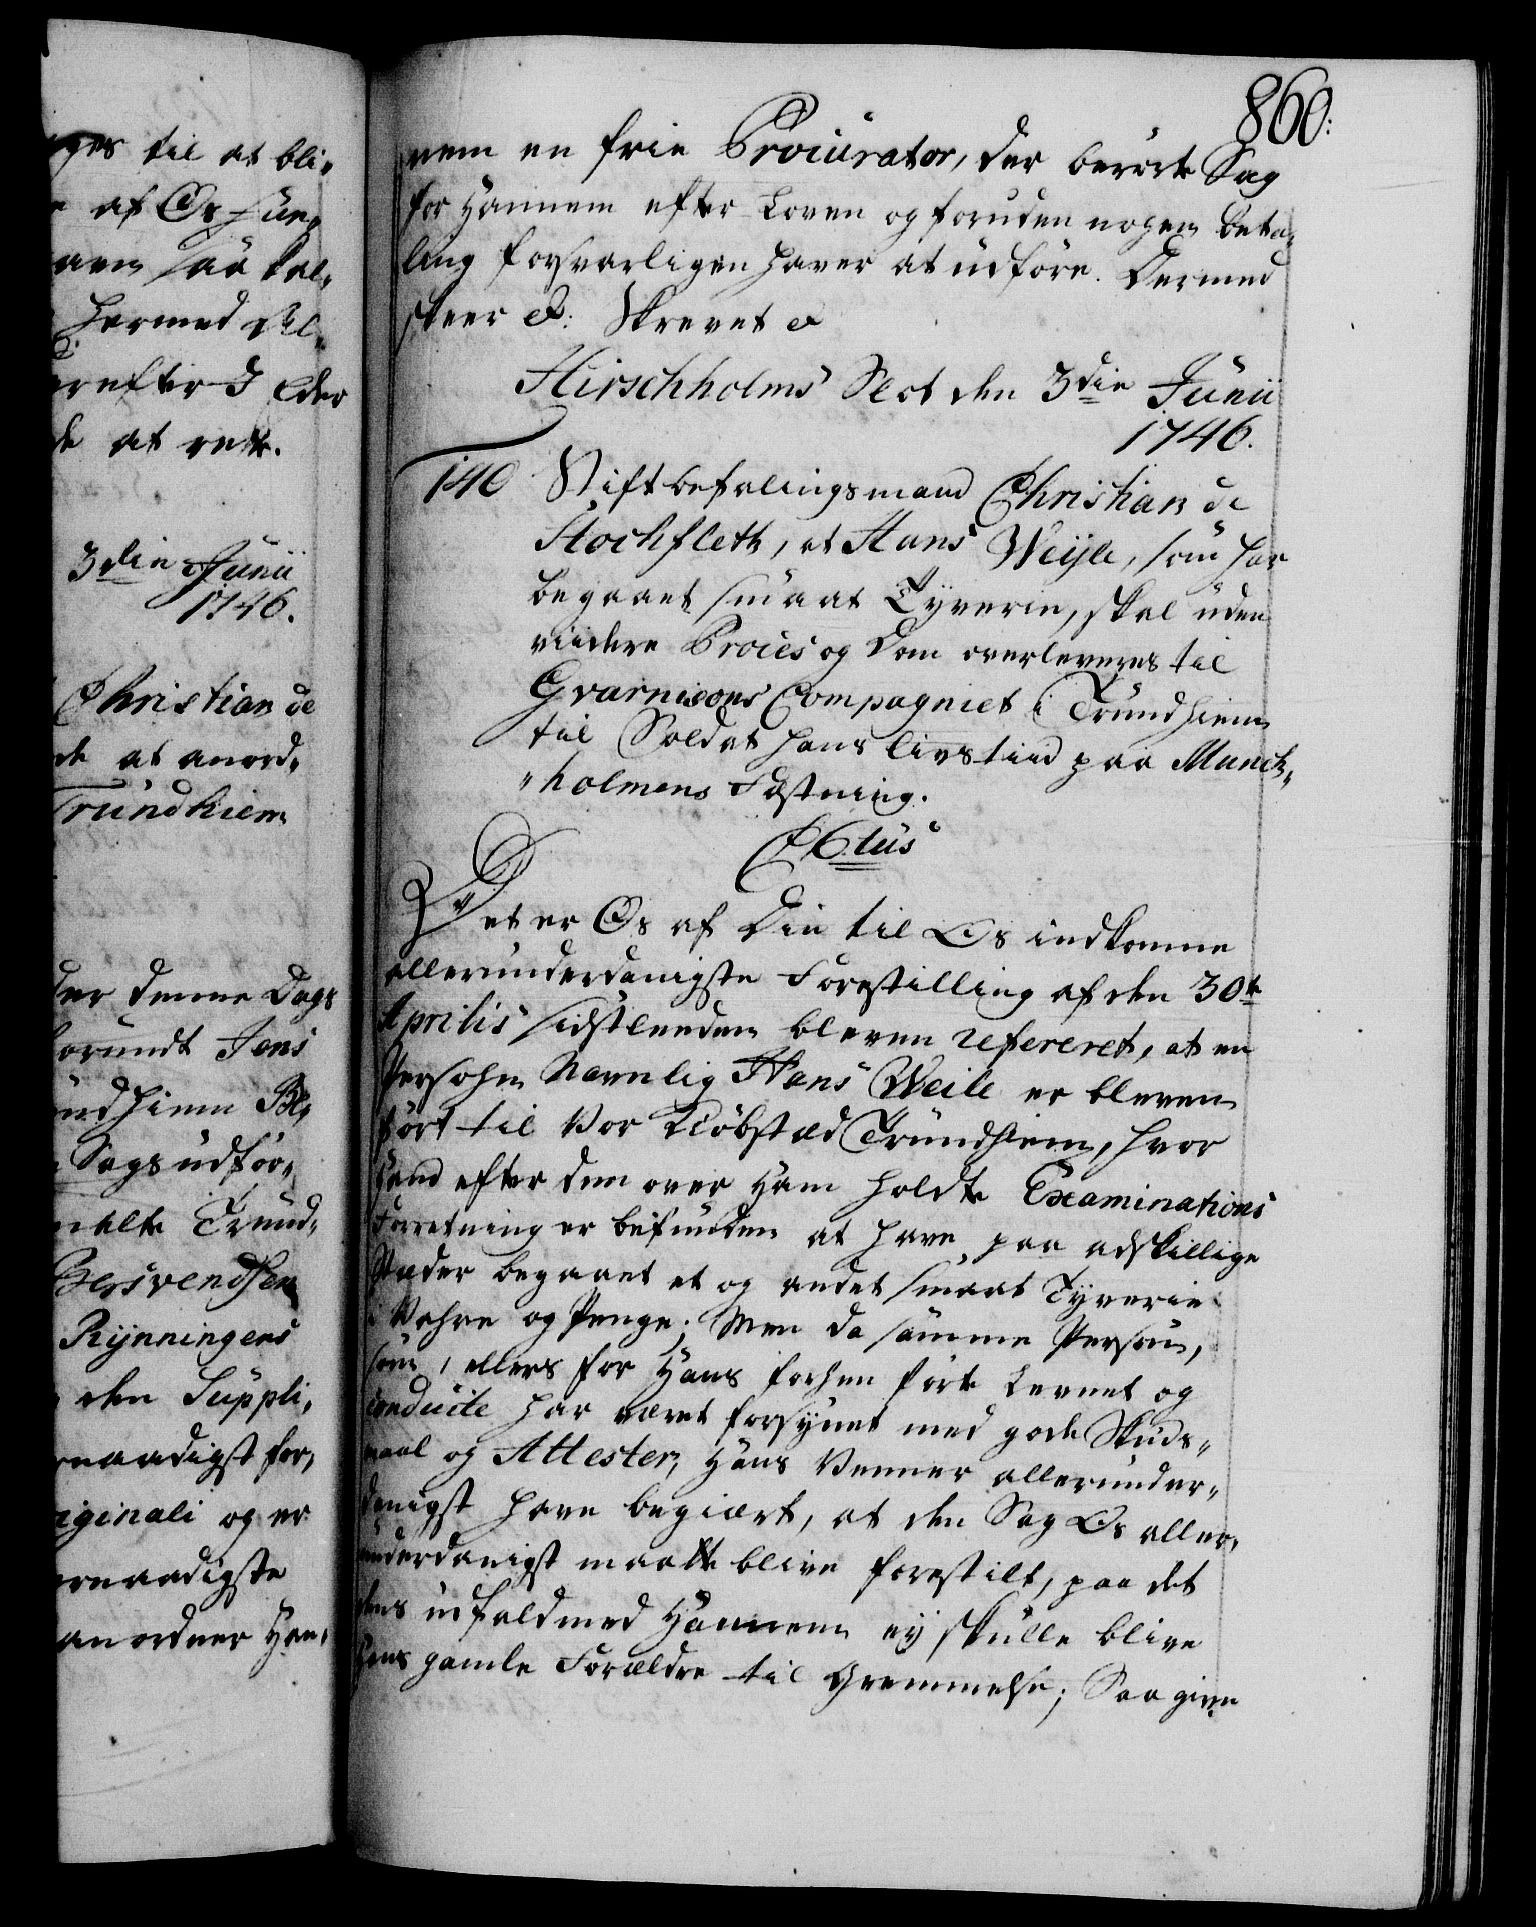 ges til at bli-
af Os fun-
saa skal,
hermed Al-
erefter I Eder
de at rette.
3die Junii
1746.
Christian de
de at anord-
Trundhiem
der denne Dags
forundt Jens
undhiem Be-
Sags udfør-
melte Trund-
Bessvendsen
Rynningens
den Suppli-
naadigst for,
riginali og er
ernaadigste
anordner Han-
860.
nem en frie Procurator, der berørte Sag
for Hannem efter Loven og foruden nogen beta-
ling forsvarligen haver at udføre. Dermed
skeer &: Skrevet &
Hirschholms Slot den 3die Junii
1746.
140 Stiftbefalingsmand Christian de
Stochfleth, at Hans Weyle, som har
begaaet smaat Tyverie, skal uden
viidere Proces og Dom overleveres til
Gvarnisons Compagniet i Trundhiem
til Soldat hans livs tiid paa Munck-
"holmens Fæstning.
C6tus
Det er Os af Din til Os indkomne
allerunderdanigste Forestilling af den 30te
Aprilis sidstleeden bleven refereret, at en
Persohn Navnlig Hans Weile er bleven
ført til Vor Kiøbstæd Trundhiem, hvor
hand efter den over Ham holdte Examinations
Forretning er befunden at have paa adskillige
Stæder begaaet et og andet smaat Tyverie
i Vahre og Penge; Men da samme Person,
som, ellers for Hans forhen førte Levnet og
conduite har været forsynet med gode Skuds-
maal og Attester, Hans Venner allerunder-
danigst have begiært, at den Sag Os aller-
underdanigst maatte blive forestilt, paa det
dens udfald med Hannem ey skulle blive
Hans gamle Forældre til Gremmelse; Saa give